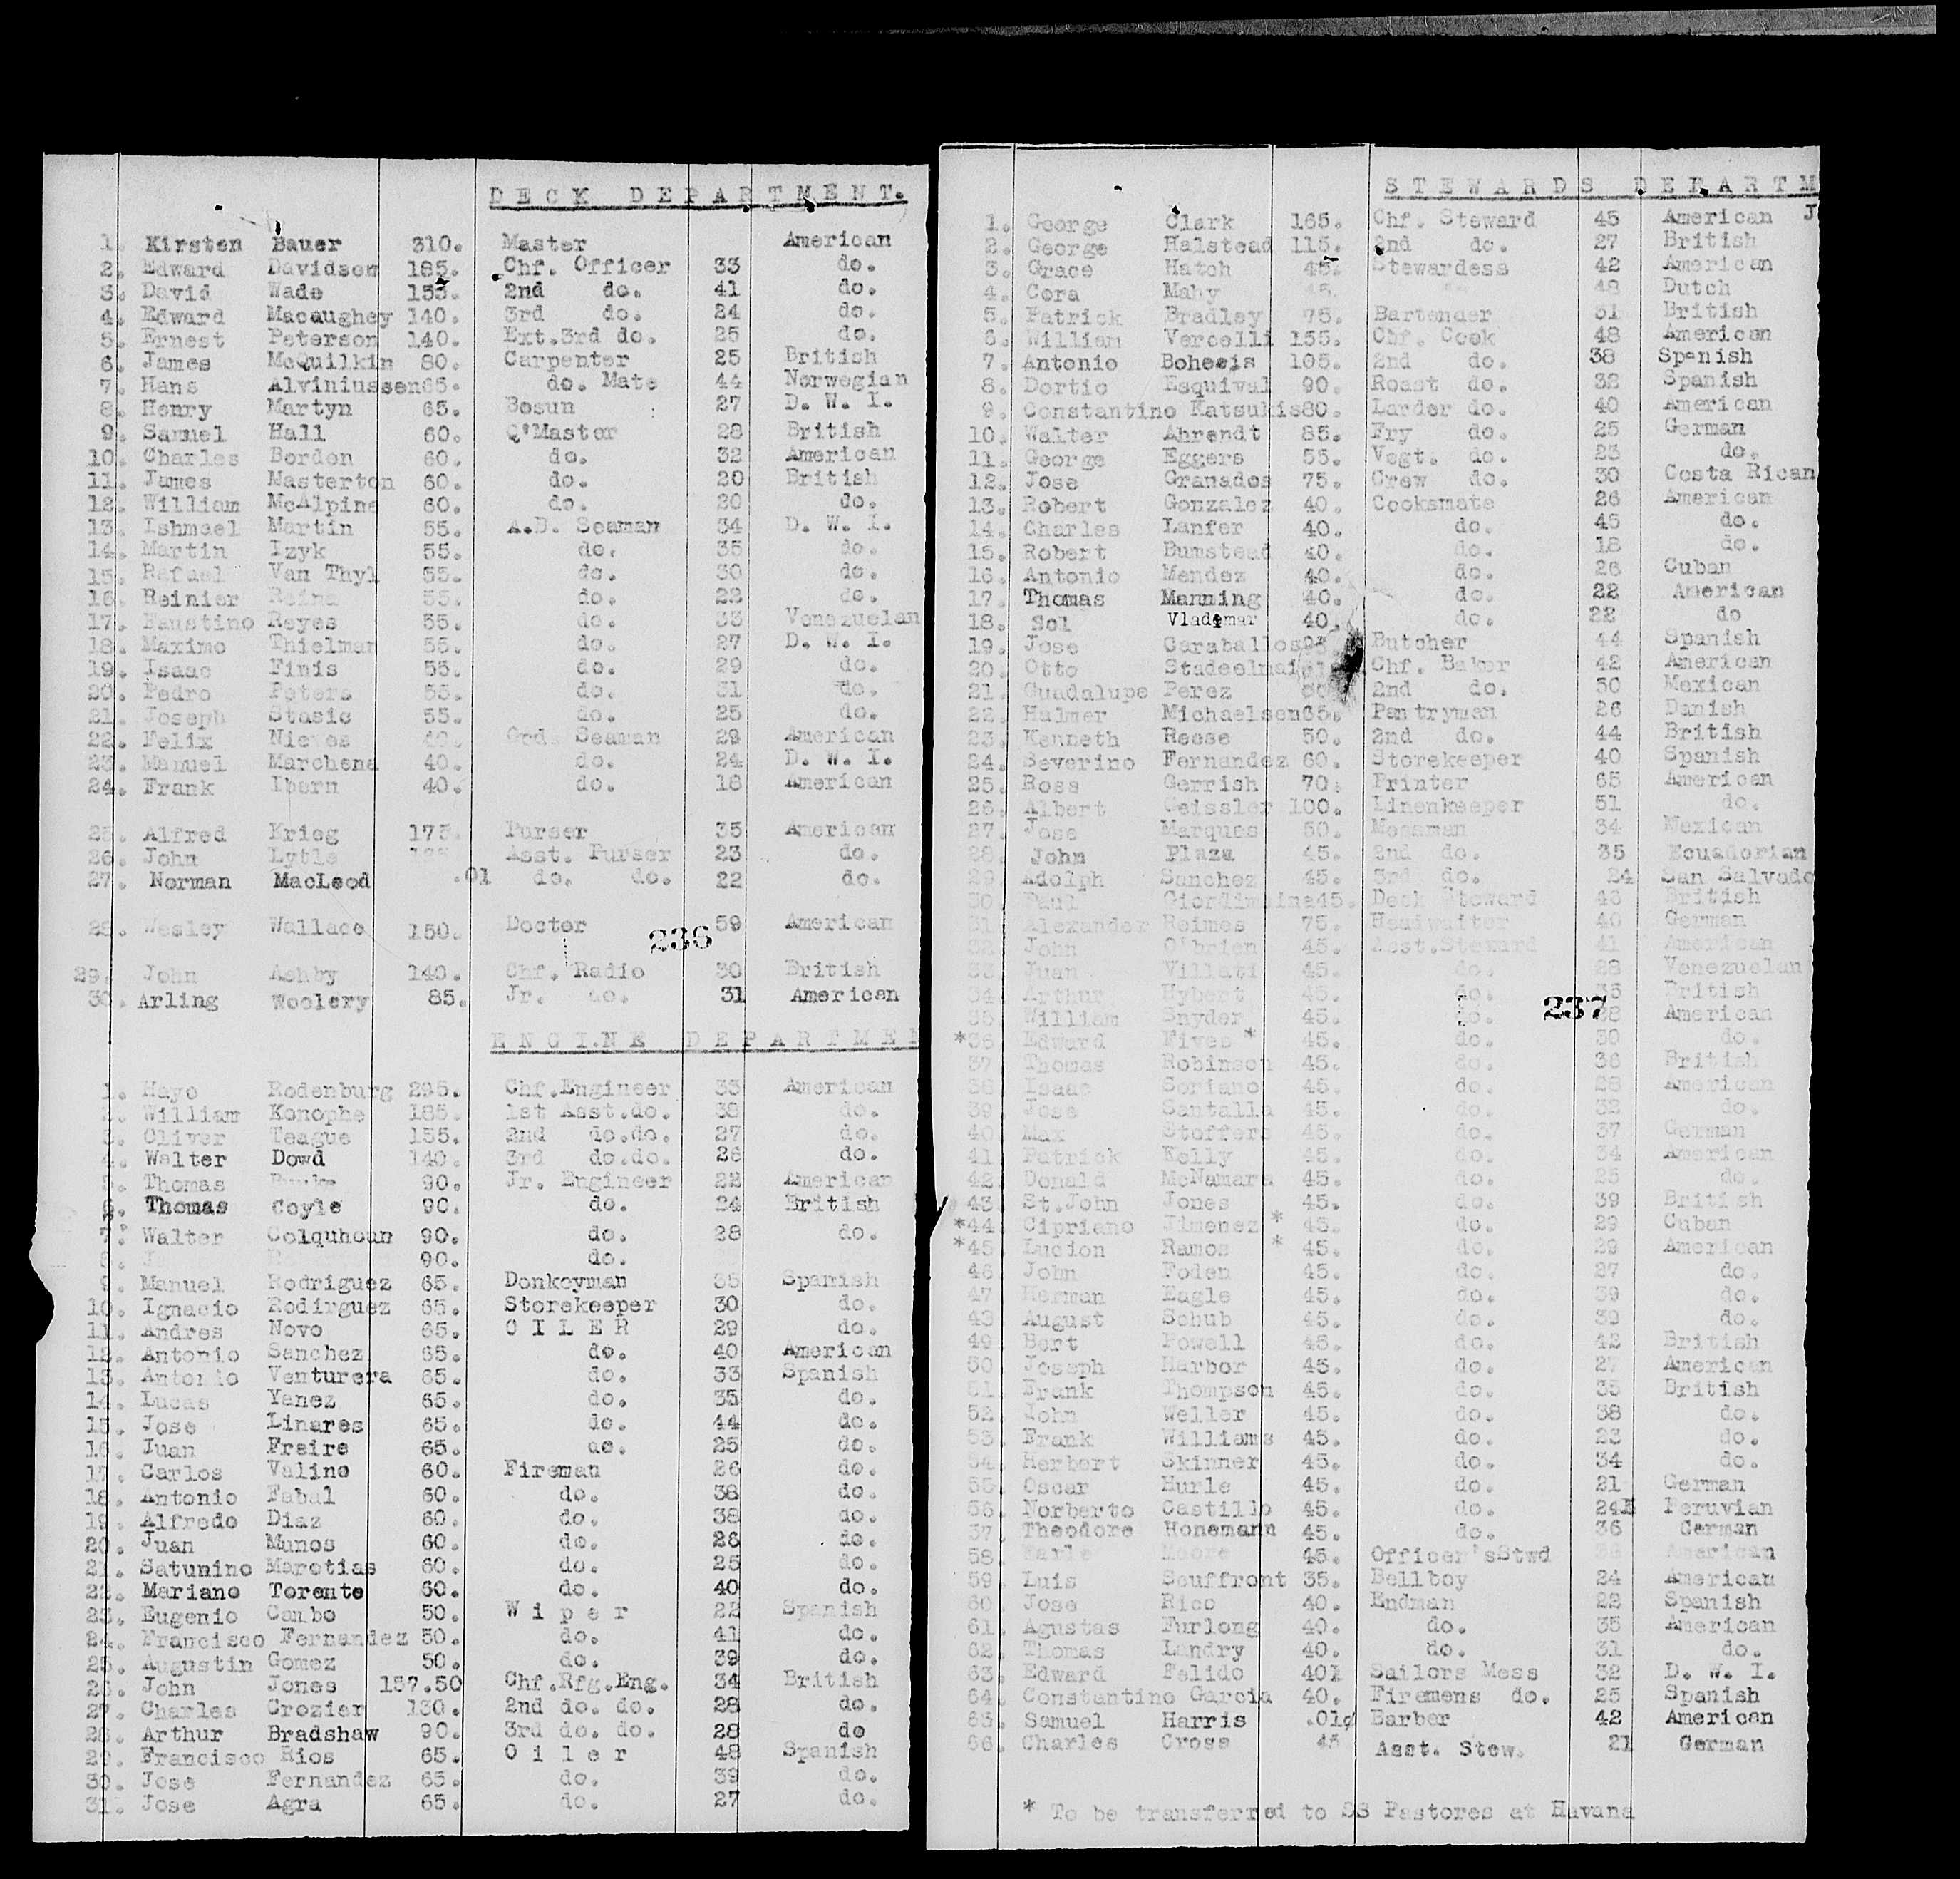 DECK DEPARTMENT.
1. Kirsten Bauer 310. Master American
2. Edward Davidson 185. Chf. Officer 33 do.
3. David Wade 155. 2nd do. 41 do.
4. Edward Macaughey 140. 3rd do. 24 do.
5. Ernest Peterson 140. Ext.3rd do. 25 do.
6. James McQuilkin 80. Carpenter 25 British
7. Hans Alviniussen65. do. Mate 44 Norwegian
8. Henry Martyn 65. Bosun 27 D. W. I.
9. Samuel Hall 60. Q'Master 28 British
10. Charles Borden 60. do. 32 American
11. James Masterton 60. do. 20 British
12. William McAlpine 60. do. 20 do.
13. Ishmael Martin 55. A.B. Seaman 34 D. W. I.
14. Martin Izyk 55. do. 35 do.
15. Rafael Van Thyl 55. do. 30 do.
16. Reinier Reina 55. do. 22 do.
17. Faustino Reyes 55. do. 33 Venezuelan
18. Maximo Thielman 55. do. 27 D. W. I.
19. Isaac Finis 55. do. 29 do.
20. Pedro Peters 55. do. 31 do.
21. Joseph Stasie 55. do. 25 do.
22. Felix Nieves 40. Ord. Seaman 29 American
23. Manuel Marchena 40. do. 24 D. W. I.
24. Frank Ibarn 40. do. 18 American
25. Alfred Krieg 175. Purser 35 American
26. John Lytle Asst. Purser 23 do.
27. Norman MacLeod .01 do. do. 22 do.
28. Wesley Wallace 150. Doctor 59 American
236
29. John Ashby 140. Chf. Radio 30 British
30. Arling Woolery 85. Jr. do. 31 American
ENGINE DEPARTMEN
1. Mayo Rodenburg 295. Chf.Engineer 33 American
2. William Konophe 185. 1st Asst.do. 38 do.
3. Oliver Teague 155. 2nd do.do. 27 do.
4. Walter Dowd 140. 3rd do.do. 26 do.
5. Thomas 90. Jr. Engineer 22 American
6. Thomas Coyle 90. do. 24 British
7. Walter Colquhoun 90. do. 28 do.
8. 90. do.
9. Manuel Rodriguez 65. Donkeyman 35 Spanish
10. Ignacio Rodirguez 65. Storekeeper 30 do.
11. Andres Novo 65. O I L E R 29 do.
12. Antonio Sanchez 65. do. 40 American
13. Antonio Venturera 65. do. 33 Spanish
14. Lucas Yanez 65. do. 35 do.
15. Jose Linares 65. do. 44 do.
16. Juan Freire 65. do. 25 do.
17. Carlos Valino 60. Fireman 26 do.
18. Antonio Fabal 60. do. 38 do.
19. Alfredo Diaz 60. do. 38 do.
20. Juan Munos 60. do. 26 do.
21. Satunino Marotias 60. do. 25 do.
22. Mariano Torente 60. do. 40 do.
23. Eugenio Cambo 50. W i p e r 22 Spanish
24. Francisco Fernandez 50. do. 41 do.
25. Augustin Gomez 50. do. 39 do.
26. John Jones 157.50 Chf.Rfg.Eng. 34 British
27. Charles Crozier 130. 2nd do. do. 28 do.
28. Arthur Bradshaw 90. 3rd do. do. 28 do
29. Francisco Rios 65. O i l e r 48 Spanish
30. Jose Fernandez 65. do. 39 do.
31. Jose Agra 65. do. 27 do.
STEWARDS DEPARTM
1. George Clark 165. Chf. Steward 45 American J
2. George Halstead 115. 2nd do. 27 British
3. Grace Hatch 45. Stewardess 42 American
4. Cora Maby 45. 48 Dutch
5. Patrick Bradley 75. Bartender 31 British
6. William Vercelli 155. Chf. Cook 48 American
7. Antonio Bohecis 105. 2nd do. 38 Spanish
8. Dortio Esquival 90. Roast do. 32 Spanish
9. Constantino Katsukis80. Larder do. 40 American
10. Walter Ahrendt 85. Fry do. 25 German
11. George Eggers 55. Vegt. do. 23 do.
12. Jose Granados 75. Crew do. 30 Costa Rican
13. Robert Gonzalez 40. Cooksmate 26 American
14. Charles Lanfer 40. do. 45 do.
15. Robert Bumstead 40. do. 18 do.
16. Antonio Mendez 40. do. 26 Cuban
17. Thomas Manning 40. do. 22 American
18. Sol Vlademar 40. do. 22 do
19. Jose Caraballos95 Butcher 44 Spanish
20. Otto Stadeelmai Chf. Baker 42 American
21. Guadalupe Perez 2nd do. 50 Mexican
22. Halmer Michaelsen65. Pantryman 26 Danish
23. Kenneth Reese 50. 2nd do. 44 British
24. Severino Fernandez 60. Storekeeper 40 Spanish
25. Ross Gerrish 70. Printer 65 American
26. Albert Geissler 100. Linenkeeper 51 do.
27. Jose Marques 50. Messman 34 Mexican
28. John Plaza 45. 2nd do. 35 Ecuadorian
29. Adolph Sanchez 45. 3rd do. 24 San Salvado
30. Paul Giordimaina45. Deck Steward 46 British
31. Alexander Reimes 75. Headwaiter 40 German
32. John O'brien 45. Asst.Steward 41 American
33. Juan Villati 45. do. 28 Venezuelan
34. Arthur Hybert 45. do. 35 British
237
35. William Snyder 45. do. 38 American
*36 Edward Fives * 45. do. 30 do.
37. Thomas Robinson 45. do. 36 British
38. Isaac Soriano 45. do. 28 American
39. Jose Santalla 45. do. 32 do.
40. Max Stoffers 45. do. 37 German
41. Patrick Kelly 45. do. 34 American
42. Donald McNamara 45. do. 25 do.
43. St.John Jones 45. do. 39 British
*44. Cipriano Jimenez * 45. do. 29 Cuban
*45. Lucion Ramos * 45. do. 29 American
46. John Foden 45. do. 27 do.
47. Herman Eagle 45. do. 39 do.
48. August Schub 45. do. 39 do.
49. Bert Powell 45. do. 42 British
50. Joseph Harbor 45. do. 27 American
51. Frank Thompson 45. do. 35 British
52. John Weller 45. do. 38 do.
53. Frank Williams 45. do. 23 do.
54. Herbert Skinner 45. do. 34 do.
55. Oscar Hurle 45. do. 21 German
56. Norberto Castillo 45. do. 24 Peruvian
57. Theodore Honemann 45. do. 36 German
58. Earle Moore 45. Officer'sStwd American
59. Luis Scuffront 35. Bellboy 24 American
60. Jose Rico 40. Endman 22 Spanish
61. Agustas Furlong 40. do. 35 American
62. Thomas Landry 40. do. 31 do.
63. Edward Felido 40 Sailors Mess 32 D. W. I.
64. Constantino Garcia 40. Firemens do. 25 Spanish
65. Samuel Harris .01¢ Barber 42 American
66. Charles Cross 45 Asst. Stew. 21 German
* To be transferred to SS Pastores at Havana